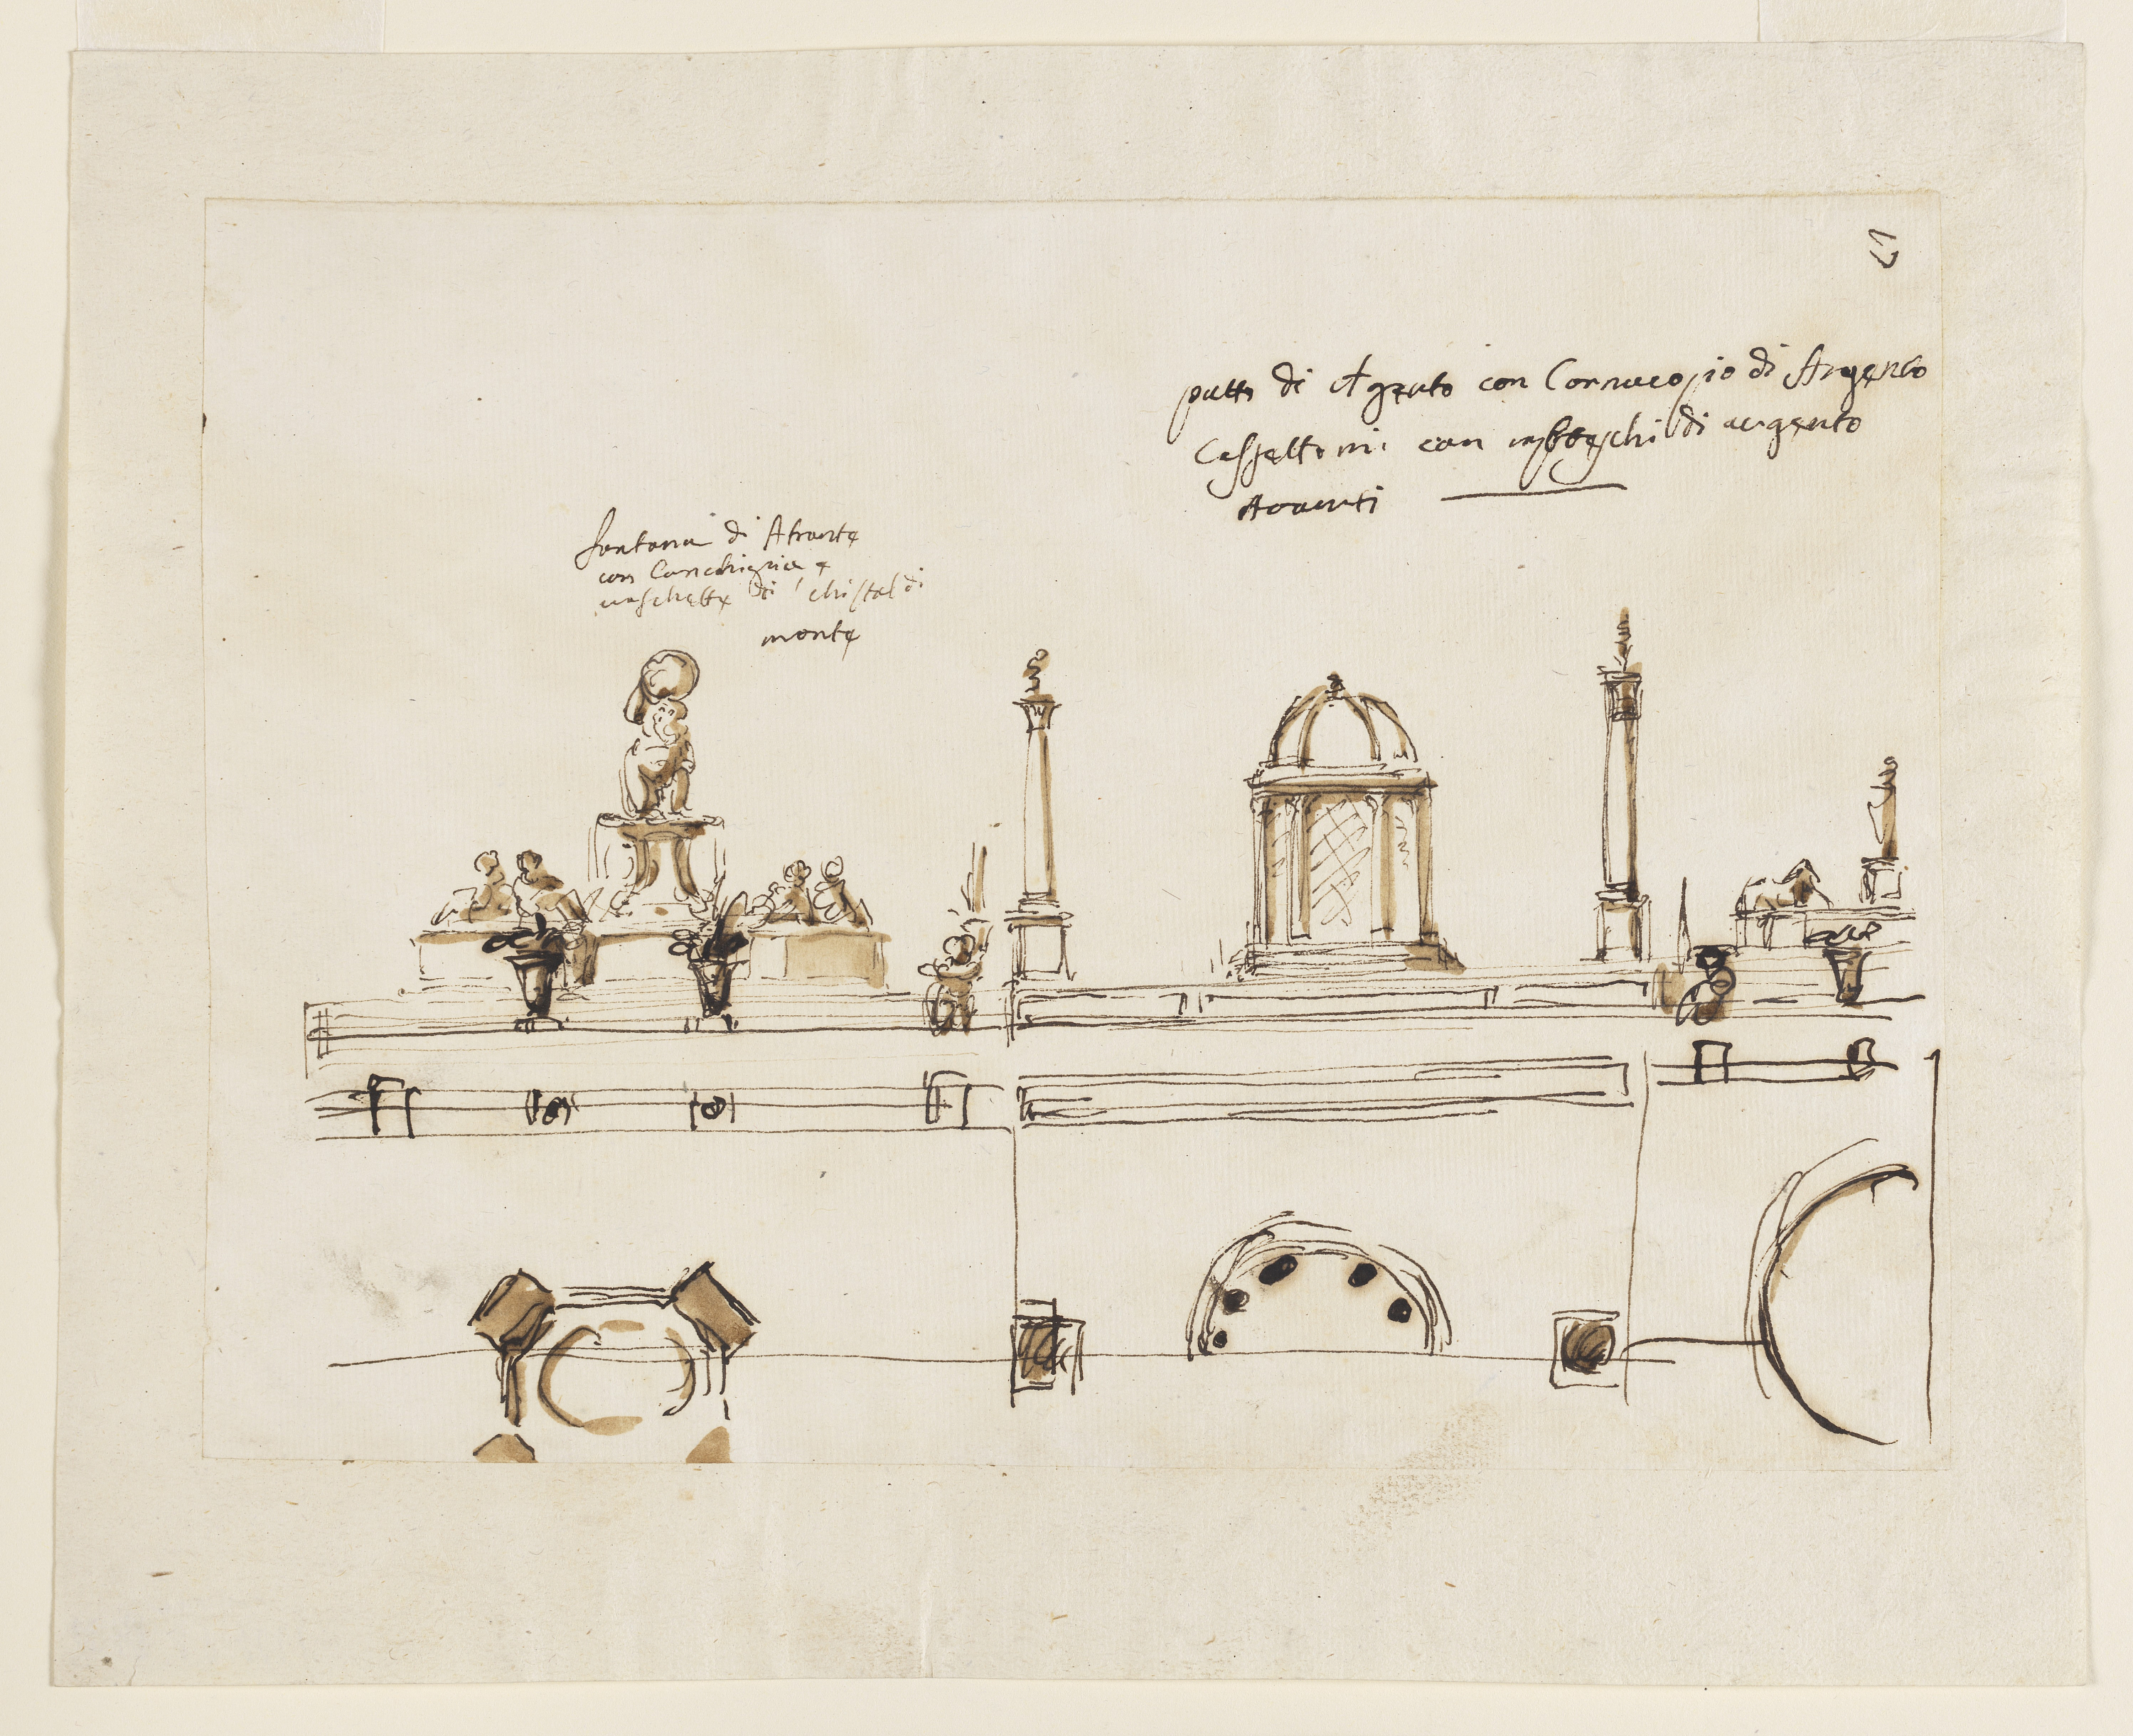 putti di Argento con Cornucopio di Argento
Cassettoni con rabbeschi di argento
Avanti
fontana di Atrante
con Conchiglia e
vaschette di christal di
monte